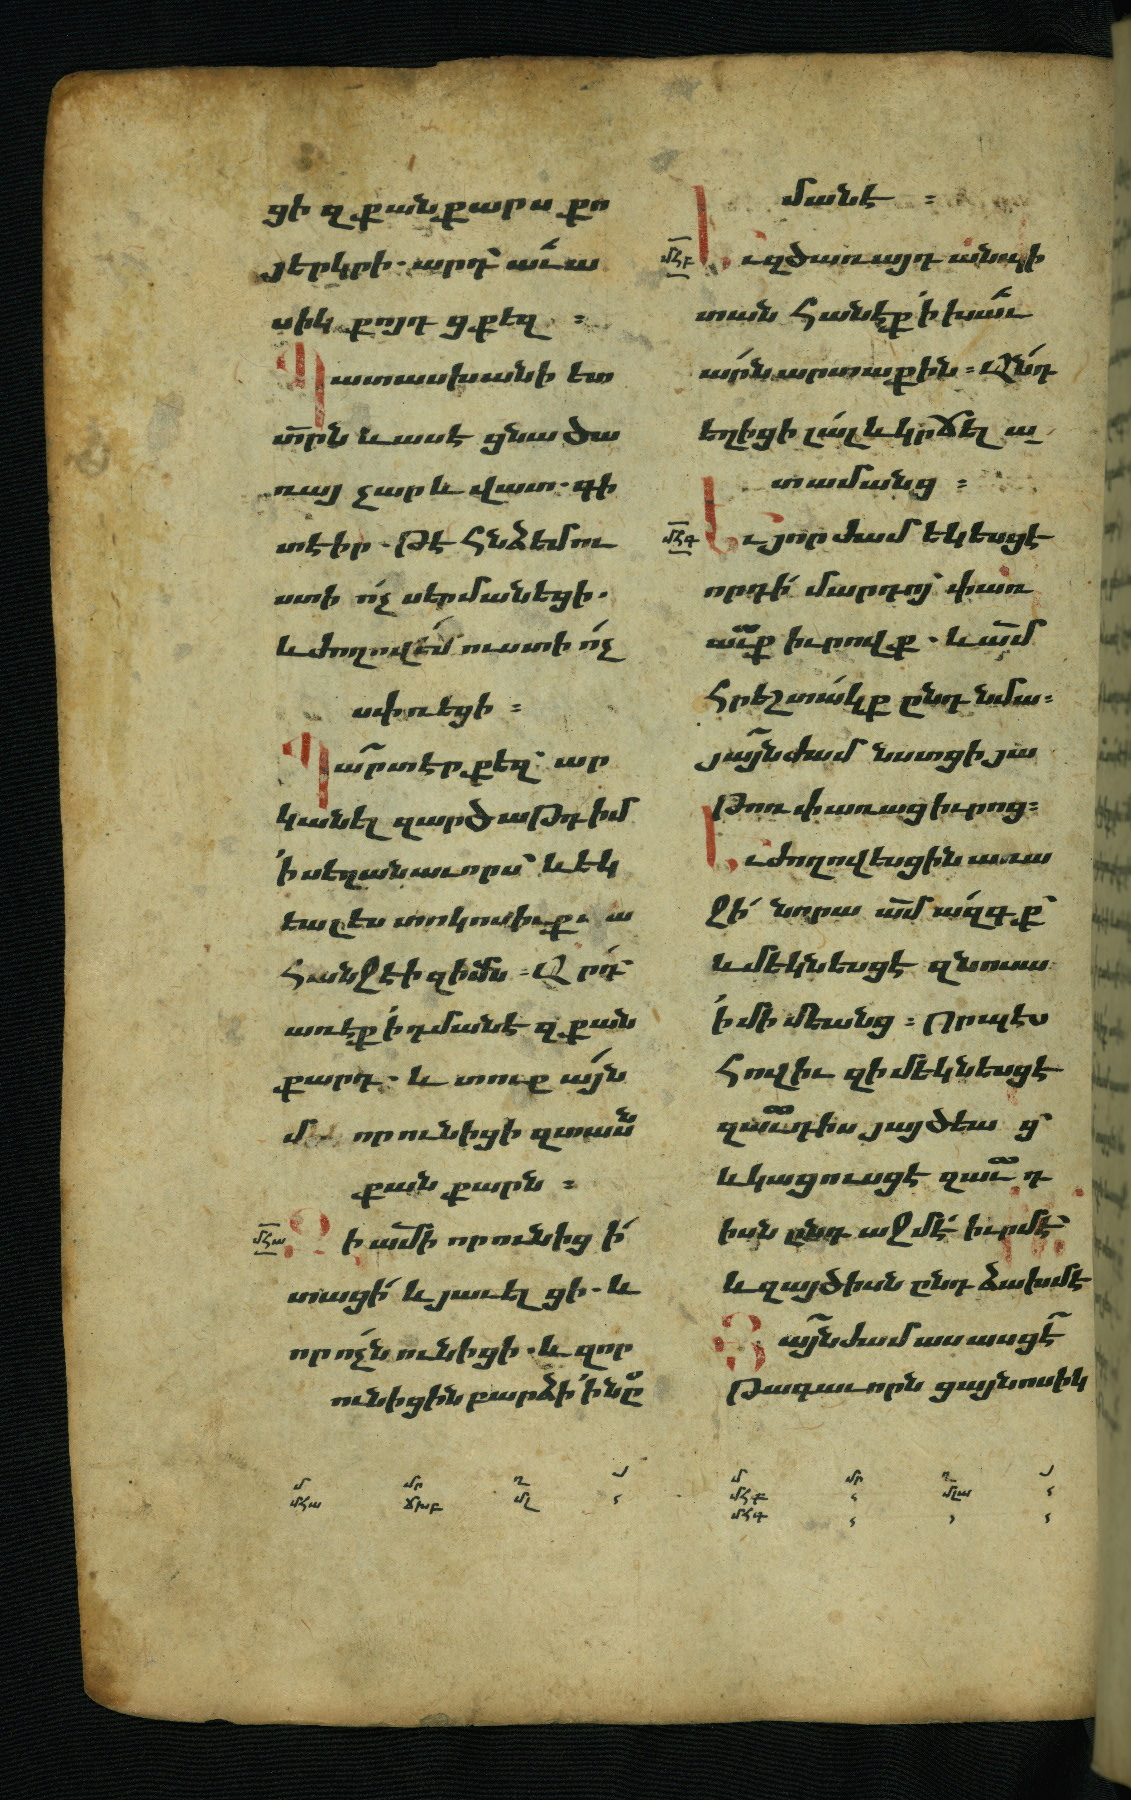 ցի զքանքարս քո
յերկրի. արդ՝ ա՛ւա
սիկ քոյդ ցքեզ ։
Պատասխանի ետ
տրն և ասէ ցնա ծա
ռայ չար և վատ. գի
տէիր. թէ հնձեմ ու
ստի ո՛չ սերմանեցի.
և ժողովե՛մ ուստի ո՛չ
սփռեցի ։
Պարտ էր քեզ՝ ար
կանել զարծաթդ իմ
ի սեղանաւորս՝ և եկ
եալ ես տոկոսեւք. պ
հանջէի զիմն ։ Արդ՝
առէք ի դմանէ զքան
քարդ. և տուք այն
մ որ ունիցի զտասն
քանքարն ։
մհա Զի ամի որ ունիցի
տացի՛ և յաւելցի. և
որ ո՛չն ունիցի. և զոր
ունիցին բարձցի ի նմ
մհա ճխբ մլ
մանէ ։
մհբ Եւ զծառայդ անպի
տան հանէք ի խաւ
ա՛րն արտաքին ։ Անդ
եղիցի լա՛լ և կրճել ա
տամանց ։
մհգ Եւ յորժամ եկեսցէ
որդի՛ մարդոյ՝ փառ
աւք իւրովք. և ամ
հրեշտա՛կք ընդ նմա ։
յայնժամ նստցի յա
թոռ փառաց իւրոց ։
Եւ ժողովեսցին առա
ջի՛ նորա ամ ա՛զգք՝
և մեկնեսցէ զնոսա
ի միմեանց ։ Որպէս
հովիւ զի մեկնեսցէ
զաւդիս յայծեա ց՝
և կացուսցէ զաւդ
իսն ընդ աջմէ՛ իւրմէ՝
և զայծիսն ընդ ձախմէ
Յայնժամ ասասցէ
թագաւորն ցայնոսիկ
մ մր ղ յ
մհբ մլա
մհգ